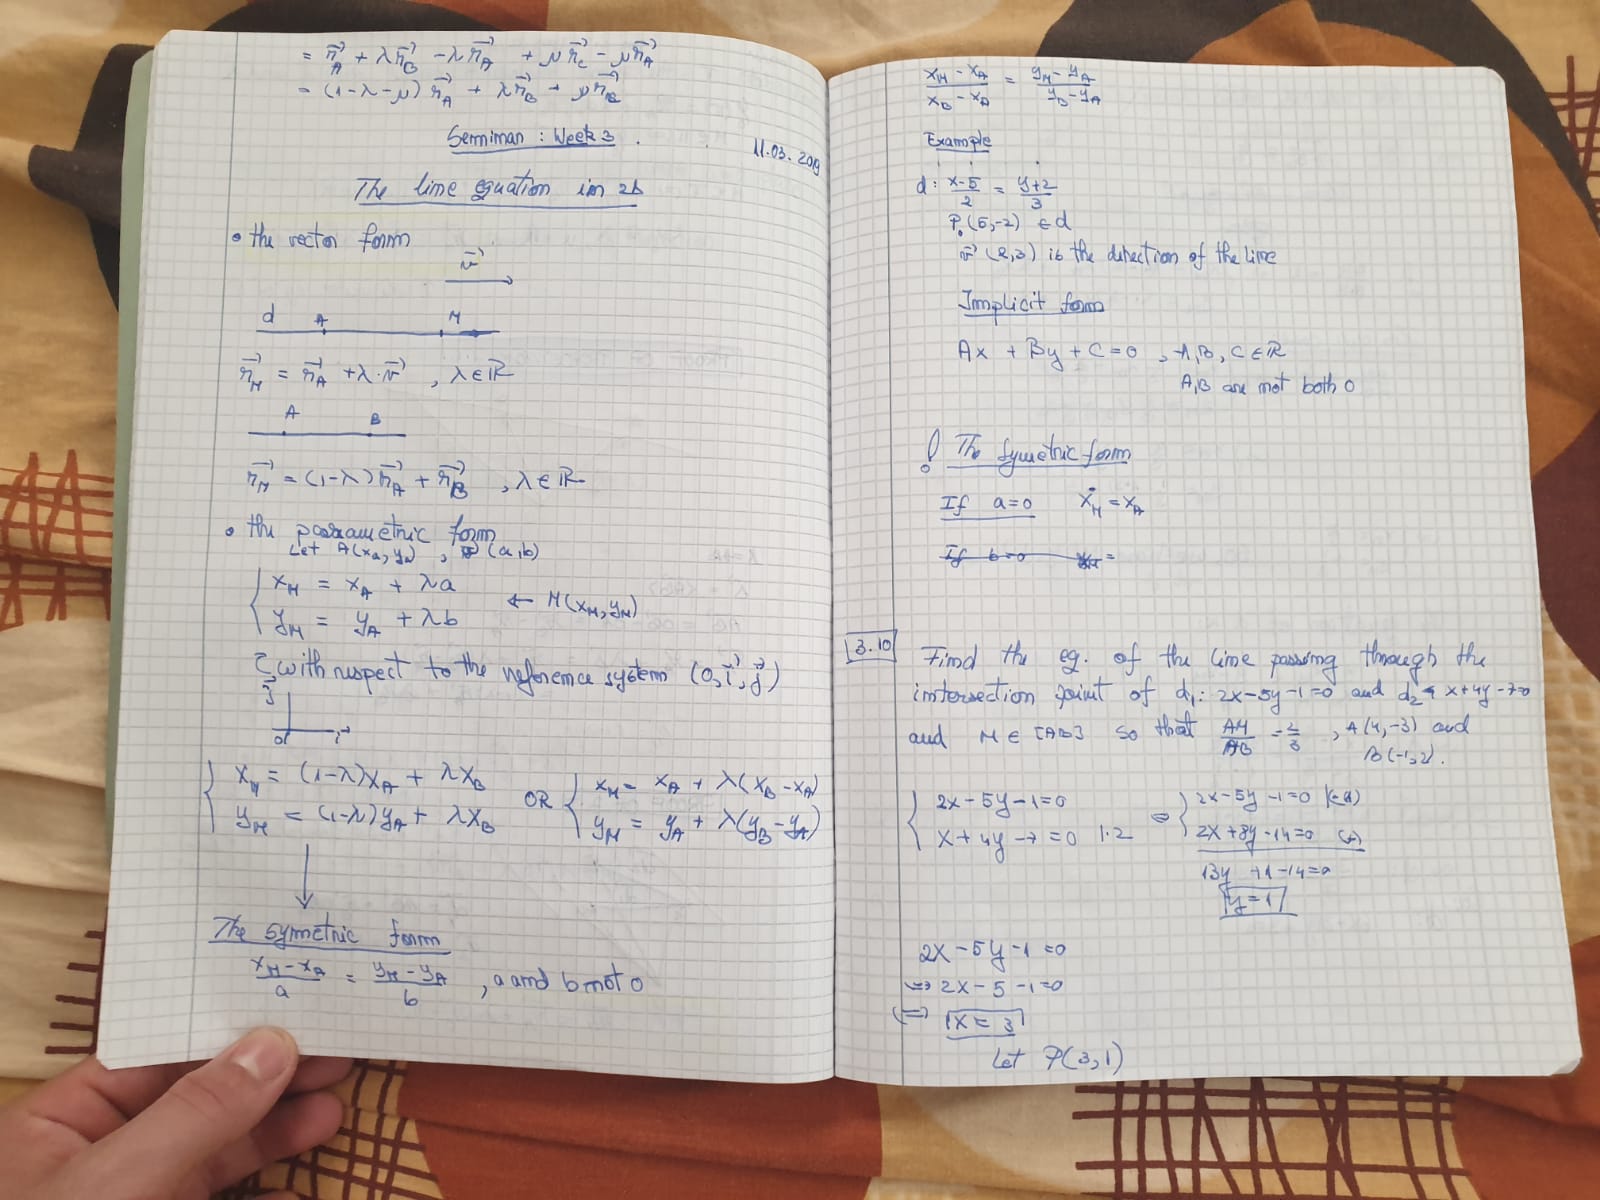 = r⃗_A + λr⃗_B - λr⃗_A + μr⃗_C - μr⃗_A
= (1-λ-μ) r⃗_A + λr⃗_B + μr⃗_B
Seminar : Week 3 .
11.03.2019
The line equation in 2D
• the vector form
v⃗
d A M
r⃗_M = r⃗_A + λ·v⃗ , λ∈ℝ
A B
r⃗_M = (1-λ) r⃗_A + r⃗_B , λ∈ℝ
• the parametric form
Let A(x_A, y_A) , v⃗ (a,b)
{ x_M = x_A + λa
y_M = y_A + λb ← M(x_M, y_M)
with respect to the reference system (0, i⃗, j⃗)
j⃗
0 i⃗
{ x_M = (1-λ)x_A + λx_B
y_M = (1-λ)y_A + λx_B
OR { x_M = x_A + λ(x_B - x_A)
y_M = y_A + λ(y_B - y_A)
The symetric form
(x_M - x_A)/a = (y_M - y_A)/b , a and b not 0
(x_M - x_A)/(x_B - x_A) = (y_M - y_A)/(y_B - y_A)
Example
d: (x-5)/2 = (y+2)/3
P₀(5,-2) ∈ d
v⃗ (2,3) is the direction of the line
Implicit form
Ax + By + C = 0 , A,B,C∈ℝ
A,B are not both 0
! The symetric form
If a=0 x_M = x_A
If b=0 x_M =
3.10 Find the eq. of the line passing through the
intersection point of d₁: 2x-5y-1=0 and d₂: x+4y-7=0
and M∈[AB] so that AM/AB = 2/3 , A(4,-3) and
B(-1,2).
{ 2x-5y-1=0
x+4y-7=0 |·2
⇔ { 2x-5y-1=0 |(-1)
2x+8y-14=0 (+)
13y +1-14=0
y=1
2x-5y-1=0
⇒ 2x-5-1=0
⇔ x=3
Let P(3,1)